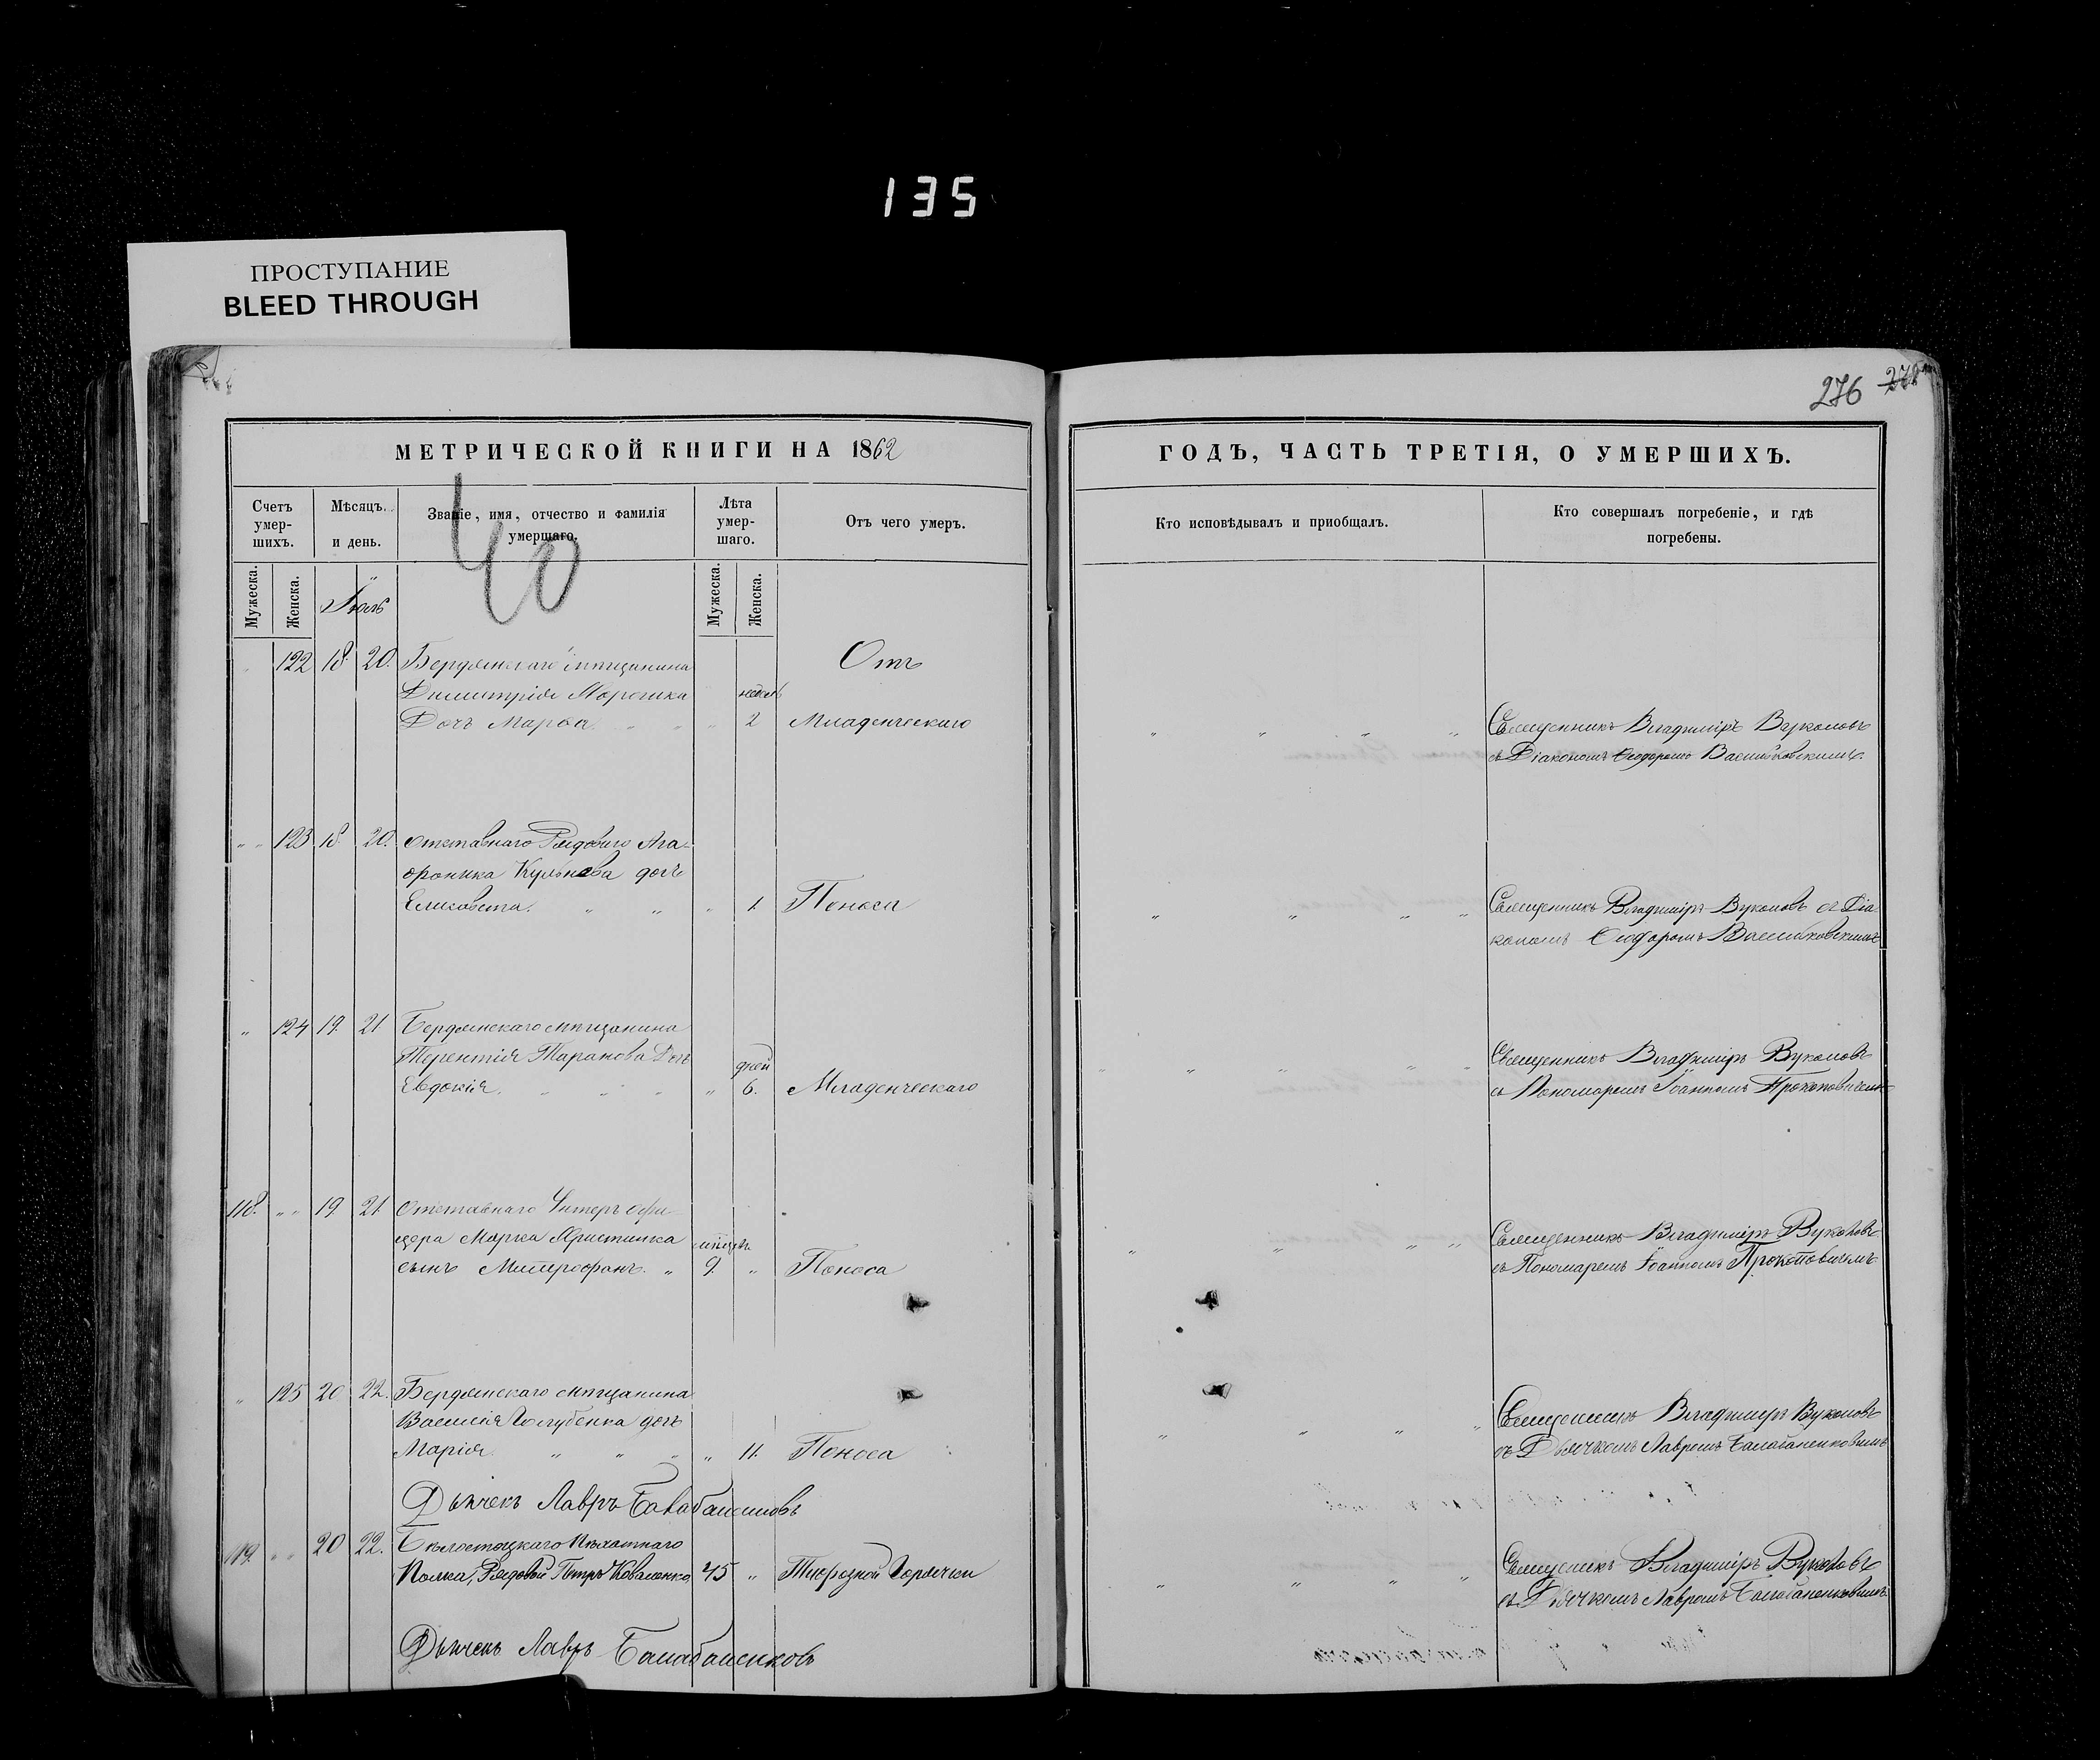 135
ПРОСТУПАНИЕ
BLEED THROUGH
276 278
МЕТРИЧЕСКОЙ КНИГИ НА 1862
ГОДЪ, ЧАСТЬ ТРЕТІЯ, О УМЕРШИХЪ.
Счетъ умер-шихъ.
Мѣсяцъ. и день.
Званіе, имя, отчество и фамилія умершаго.
Лѣта умер-шаго.
Отъ чего умеръ.
Кто исповѣдывалъ и приобщалъ.
Кто совершалъ погребеніе, и гдѣ погребены.
40
Мужеска. Женска. Іюль Мужеска. Женска.
122 18. 20. Бердянскаго мѣщанина Отъ
Димитрія недель
Дочь Марѳа " " " 2 Младенческаго " " " " Священникъ Владиміръ Вуколовъ
съ Діакономъ Ѳеодоромъ Васильковскимъ.
" " 123 18 20. Отставнаго Рядового Ага-
ѳоника Кульнева дочь
Елисавета. " " " 1. Поноса " " " " Священникъ Владиміръ Вуколовъ съ Діа-
кономъ Ѳеодоромъ Васильковскимъ
" 124 19. 21 Бердянскаго мѣщанина
Терентія Таранова Дочь дней
Евдокія. " " " " 6. Младенческаго " " " " Священникъ Владиміръ Вуколовъ
съ Пономаремъ Іоанномъ Прокоповичемъ
118. " " 19 21. Отставнаго Унтеръ офи-
цера Марка мѣсяцъ
сынъ Митрофанъ. " 9. " Поноса " " " " Священникъ Владиміръ Вуколовъ
съ Пономаремъ Іоанномъ Прокоповичемъ.
" 125 20 22. Бердянскаго мѣщанина
Василія Голубенка дочь
Марія. " " " " 11. Поноса " " " " Священникъ Владиміръ Вуколовъ
съ Дьячкомъ Лавромъ Балабаненковымъ
Дьячекъ Лавръ
119. " " 20 22. Бѣлостоцкаго Пѣхотнаго
Полка, Рядовой Петръ Коваленко 45 " Тифозной Горячки " " " " Священикъ Владиміръ Вуколовъ
съ Дьячкомъ Лавромъ Балабаненковымъ
Дьячекъ Лавръ Балабаненковъ